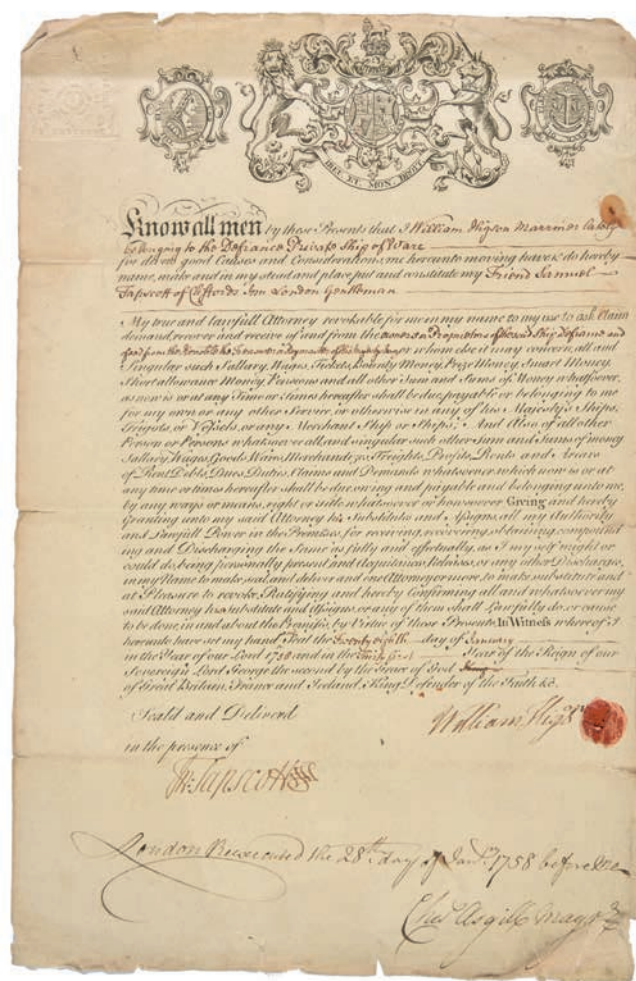 DIEU ET MON DROIT
Know all men by these Presents that I William Higson Marriner lately
belonging to the Defiance Private Ship of Warr
for divers good Causes and Considerations me hereunto moving have & do hereby
name, make and in my stead and place, put and constitute my Friend Samuel
Tapscott of Cliffords Inn London Gentleman
My true and lawfull Attorney revokable for me in my name to my use to ask Claim
demand, recover and receive of and from the Ship Defiance and
whom else it may concern, all and
Singular such Sallary, Wages, Tickets, Bounty Money, Prize Money, Smart Money,
Short allowance Money, Pensions and all other Sum and Sums of Money whatsoever,
as now is or at any Time or Times hereafter shall be due, payable or belonging to me
for my own or any other Service, or otherwise in any of his Majesty's Ships,
Frigots, or Vessels, or any Merchant Ship or Ships; And Also of all other
Person or Persons whatsoever all and singular such other Sum and Sums of money
Sallary, Wages, Goods, Wares, Merchandizes, Freights, Profits, Rents and Arears
of Rent Debts, Dues, Duties, Claims and Demands whatsoever which now is or at
any time or times hereafter shall be due, owing and payable and belonging unto me,
by any ways or means, right or title whatsoever or howsoever Giving and hereby
Granting unto my said Attorney his Substitutes and Assigns, all my Authority
and Lawfull Power in the Premises, for receiving, recovering, obtaining, compound
ing and Discharging the Same as fully and effectually, as I my self might or
could do, being personally present and Acquittances, Releases, or any other Discharges,
in my Name to make, seal, and deliver and one Attorney or more, to make substitute and
at Pleasure to revoke, Ratifying and hereby Confirming all and whatsoever my
said Attorney his Substitute and Assigns or any of them shall Lawfully do, or cause
to be done, in and about the Premises, by Virtue of these Presents. In Witness whereof I
hereunto have set my hand & Seal the Twenty eighth day of January
in the Year of our Lord 1758 and in the Thirty first Year of the Reign of our
Sovereign Lord George the second by the Grace of God
of Great Britain, France and Ireland, King, Defender of the Faith &c.
Seald and Deliverd
William Higson
in the presence of
Tapscott
London Executed the 28th day of Janry 1758 before Me
Chas Asgill Mayor